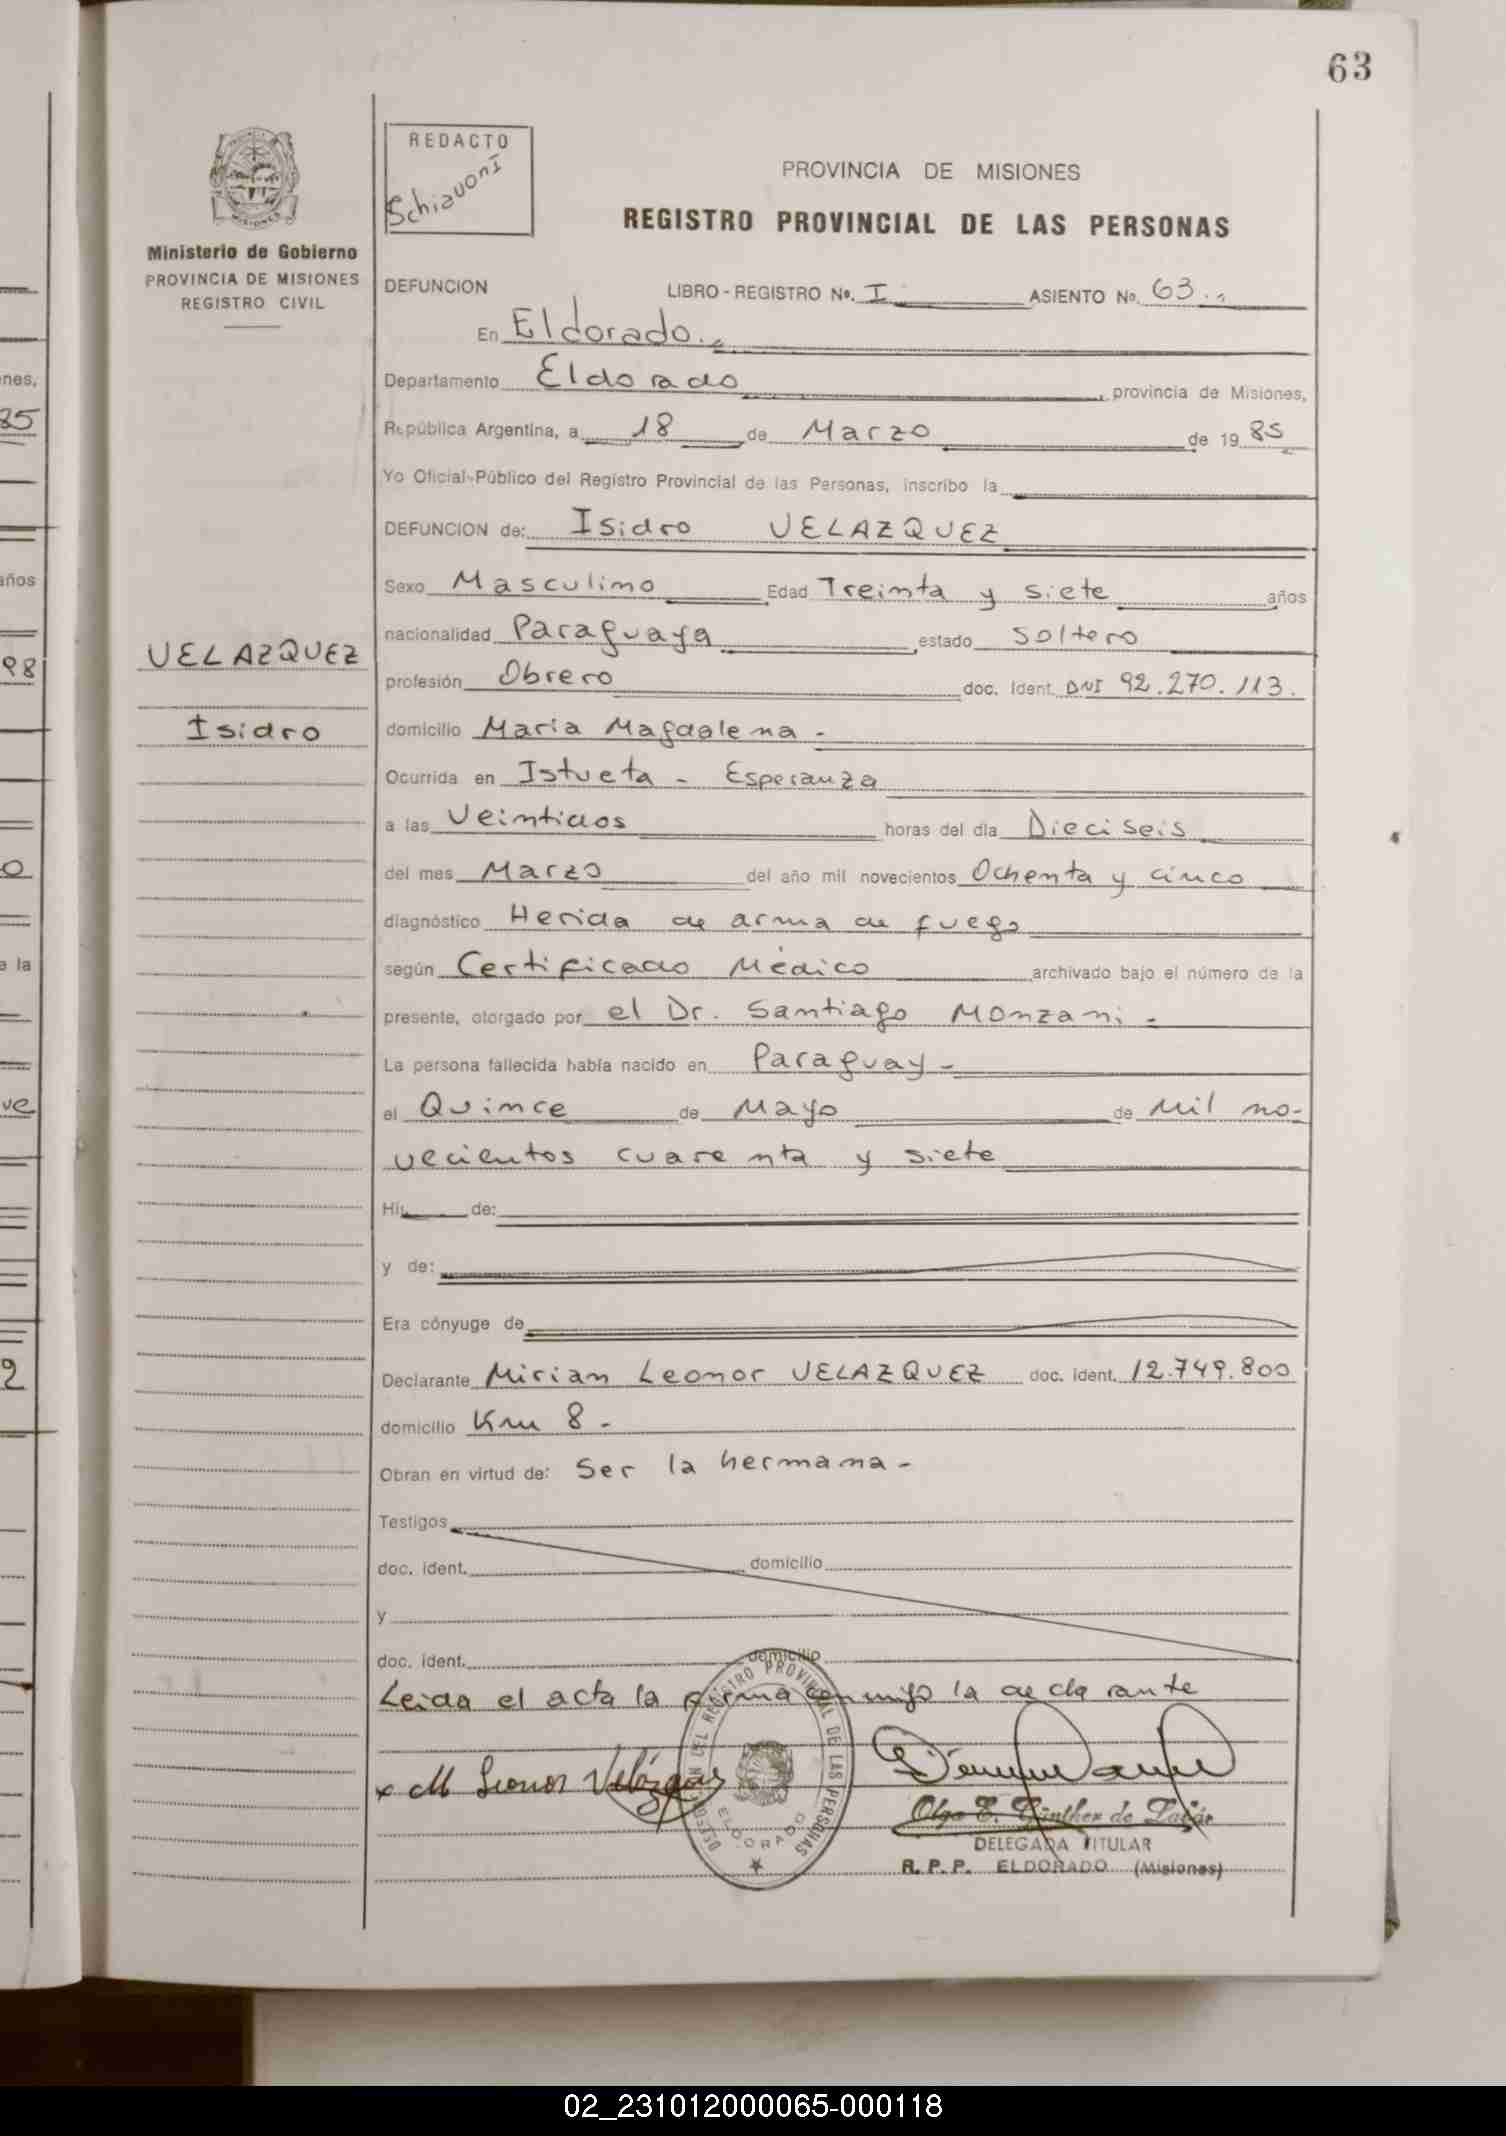 63
REDACTO
Schiavoni
PROVINCIA DE MISIONES
REGISTRO PROVINCIAL DE LAS PERSONAS
MISIONES
Ministerio de Gobierno
PROVINCIA DE MISIONES
REGISTRO CIVIL
DEFUNCION LIBRO - REGISTRO No. I ASIENTO No. 63.
En Eldorado.
Departamento Eldorado, provincia de Misiones,
República Argentina, a 18 de Marzo de 19 85
Yo Oficial-Público del Registro Provincial de las Personas, inscribo la
DEFUNCION de: Isidro VELAZQUEZ
Sexo Masculino Edad Treinta y siete años
nacionalidad Paraguaya, estado soltero
profesión Obrero doc. Ident. DNI 92.270.113.
domicilio Maria Magdalena -
Ocurrida en Istueta - Esperanza
a las Veintidos horas del día Dieciseis
del mes Marzo del año mil novecientos Ochenta y cinco
diagnóstico Herida de arma de fuego
según Certificado Médico archivado bajo el número de la
presente, otorgado por el Dr. Santiago Monzani -
La persona fallecida había nacido en Paraguay -
el Quince de Mayo de Mil no-
vecientos cuarenta y siete
Hij de:
y de:
Era cónyuge de
Declarante Mirian Leonor VELAZQUEZ doc. ident. 12.749.800
domicilio Km 8 -
Obran en virtud de: Ser la hermana -
Testigos
doc. ident. domicilio
y
doc. ident. domicilio
Leida el acta la firma conmigo la declarante
x M Leonor Velázquez
REGISTRO PROVINCIAL DE LAS PERSONAS
ELDORADO
Olga E. Günther de
DELEGADA TITULAR
R. P. P. ELDORADO (Misiones)
VELAZQUEZ
Isidro
nes,
85
años
98
o
a la
ve
2
02_231012000065-000118